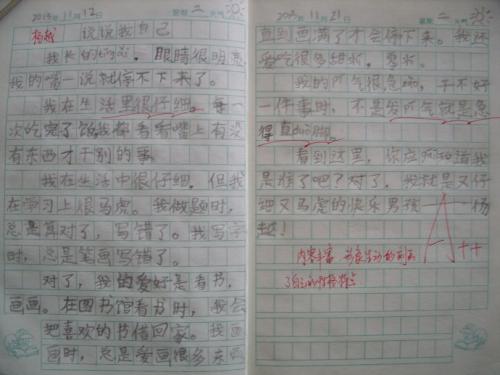 2013年11月12日 星期二
杨越 说说我自己
我长的 眼睛很明亮
我的嘴一说就停不下来了。
我在生活里很仔细。每一
次吃完了饭我都看看嘴上有没
有东西才干别的事
我在生活中很仔细。但我
在学习上很马虎。我做题时,
总是算对了,写错了。我写字
时,总是笔画写错了。
对了,我的爱好是看书,
画画。在图书馆看书时,我会
把喜欢的书借回家。我画
画时,总是爱画很多东西
11月21日 星期二
直到画满了才会停下来。我还
爱吃很
我的脾气很急躁,干不好
一件事时,不是发脾气就是急
得直
看到这里,你应该知道我
是谁了吧?对了。我就是又仔
细又马虎的快乐男孩——杨
越!
A++
内容丰富 的刻画
了自己的性格特点